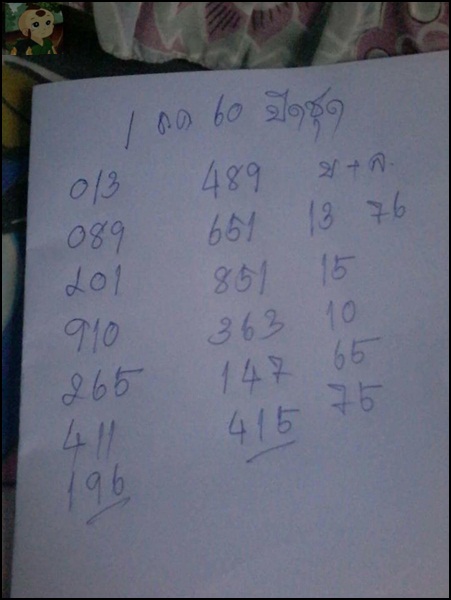 1 กค 60 ปิดชุด
013 489 บ + ล.
089 651 13 76
201 851 15
910 363 10
265 147 65
411 415 75
196